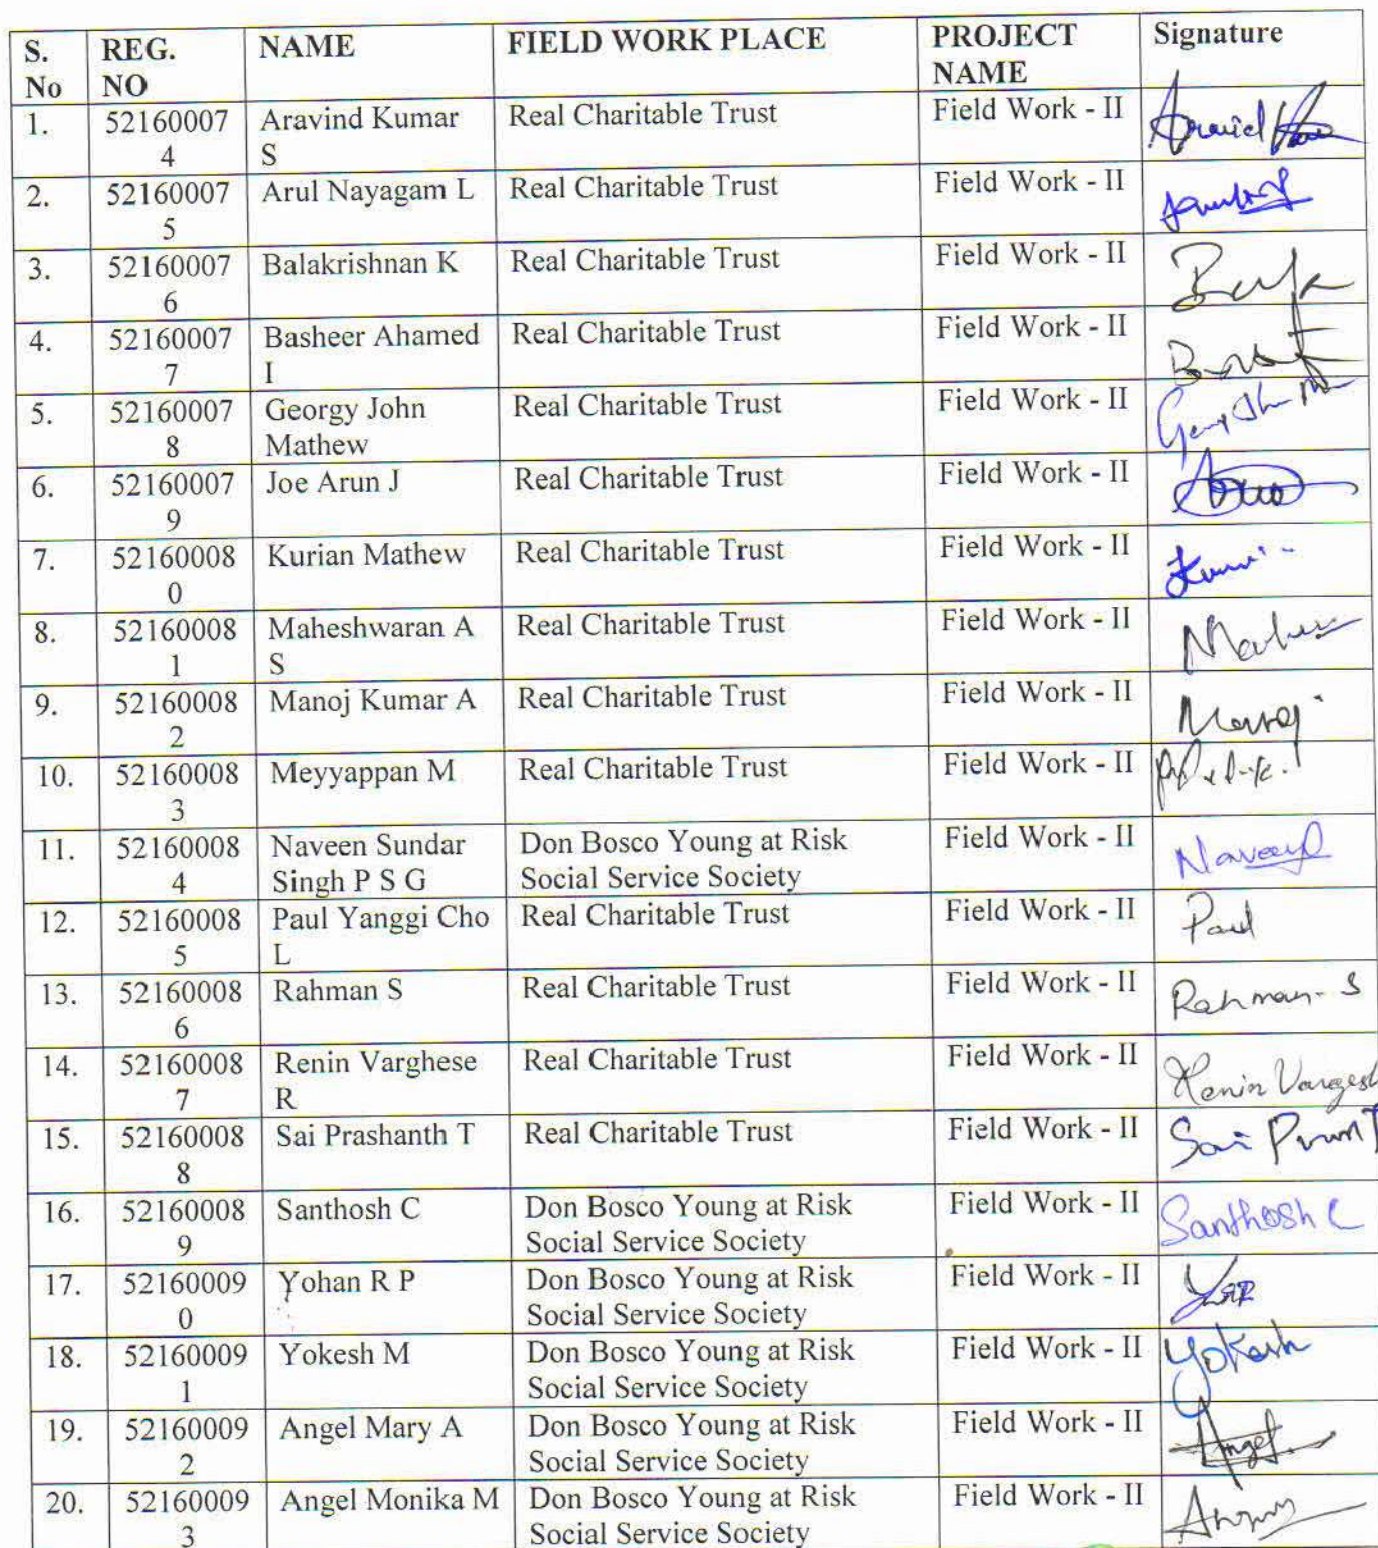 S. No REG. NO NAME FIELD WORK PLACE PROJECT NAME Signature
1. 521600074 Aravind Kumar S Real Charitable Trust Field Work - II
2. 521600075 Arul Nayagam L Real Charitable Trust Field Work - II
3. 521600076 Balakrishnan K Real Charitable Trust Field Work - II
4. 521600077 Basheer Ahamed I Real Charitable Trust Field Work - II
5. 521600078 Georgy John Mathew Real Charitable Trust Field Work - II
6. 521600079 Joe Arun J Real Charitable Trust Field Work - II
7. 521600080 Kurian Mathew Real Charitable Trust Field Work - II
8. 521600081 Maheshwaran A S Real Charitable Trust Field Work - II
9. 521600082 Manoj Kumar A Real Charitable Trust Field Work - II Manoj
10. 521600083 Meyyappan M Real Charitable Trust Field Work - II
11. 521600084 Naveen Sundar Singh P S G Don Bosco Young at Risk Social Service Society Field Work - II
12. 521600085 Paul Yanggi Cho L Real Charitable Trust Field Work - II Paul
13. 521600086 Rahman S Real Charitable Trust Field Work - II Rahman. S
14. 521600087 Renin Varghese R Real Charitable Trust Field Work - II
15. 521600088 Sai Prashanth T Real Charitable Trust Field Work - II
16. 521600089 Santhosh C Don Bosco Young at Risk Social Service Society Field Work - II Santhosh C
17. 521600090 Yohan R P Don Bosco Young at Risk Social Service Society Field Work - II
18. 521600091 Yokesh M Don Bosco Young at Risk Social Service Society Field Work - II Yokesh
19. 521600092 Angel Mary A Don Bosco Young at Risk Social Service Society Field Work - II Angel
20. 521600093 Angel Monika M Don Bosco Young at Risk Social Service Society Field Work - II